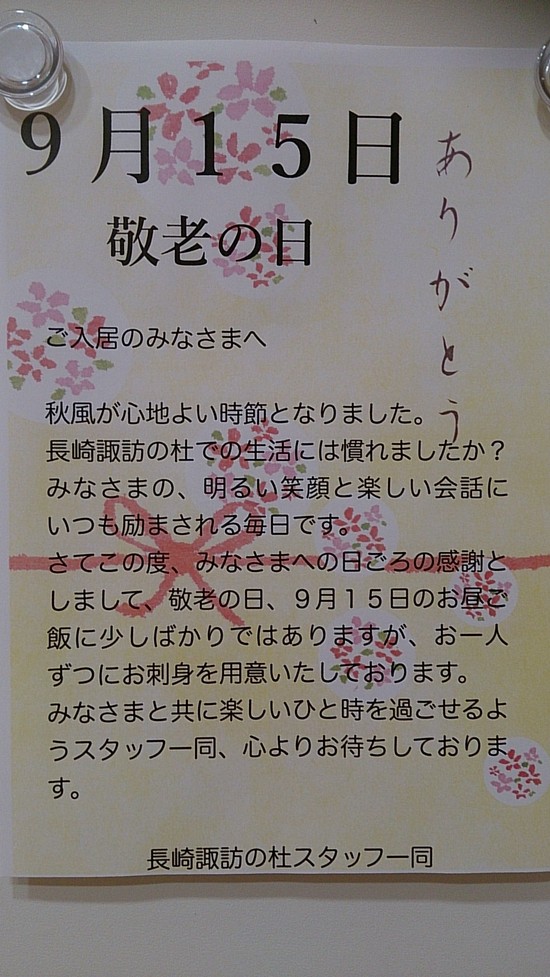 9月15日
ありがとう
敬老の日
ご入居のみなさまへ
秋風が心地よい時節となりました。
長崎諏訪の杜での生活には慣れましたか？
みなさまの、明るい笑顔と楽しい会話に
いつも励まされる毎日です。
さてこの度、みなさまへの日ごろの感謝と
しまして、敬老の日、９月１５日のお昼ご
飯に少しばかりではありますが、お一人
ずつにお刺身を用意いたしております。
みなさまと共に楽しいひと時を過ごせるよ
うスタッフ一同、心よりお待ちしておりま
す。
長崎諏訪の杜スタッフ一同